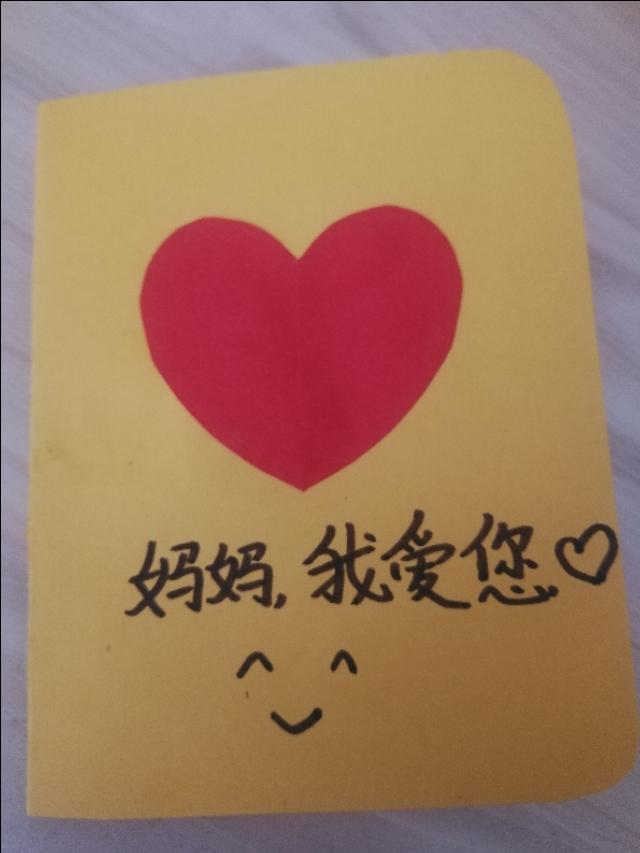 妈妈,我爱您♡